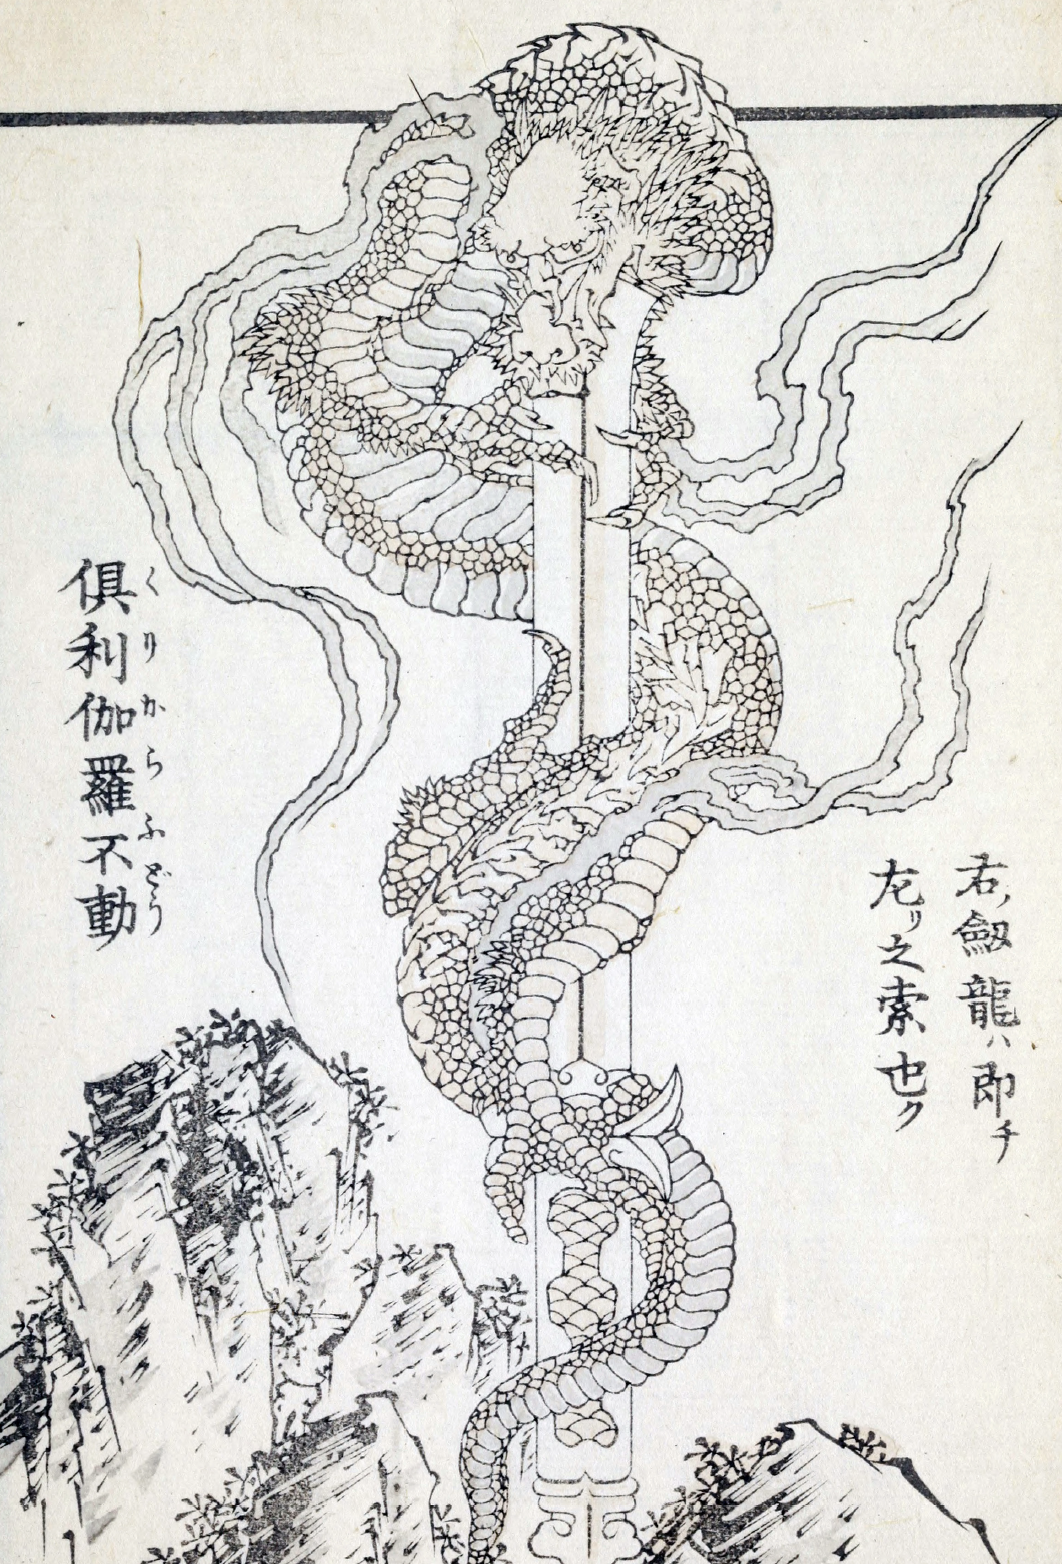 右ノ劔龍ハ即チ
左リ之索也ク
俱利伽羅不動
くりからふどう